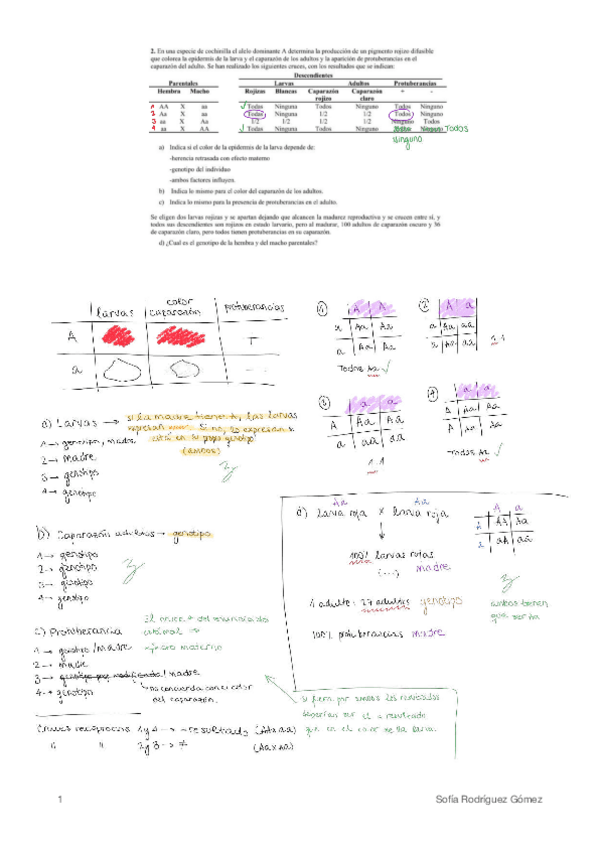 2. En una especie de cochinilla el alelo dominante A determina la producción de un pigmento rojizo difusible
que colorea la epidermis de la larva y el caparazón de los adultos y la aparición de protuberancias en el
caparazón del adulto. Se han realizado los siguientes cruces, con los resultados que se indican:
Descendientes
Parentales Larvas Adultos Protuberancias
Hembra Macho Rojizas Blancas Caparazón rojizo Caparazón claro + -
1 AA X aa ✓ Todos Ninguna Todos Ninguno Todos Ninguno
2 Aa X aa Todos Ninguna 1/2 1/2 Todos Ninguno
3 aa X Aa 1/2 1/2 1/2 1/2 Ninguno Todos
4 aa X AA ✓ Todos Ninguna Todos Ninguno Ninguno Todos
a) Indica si el color de la epidermis de la larva depende de:
-herencia retrasada con efecto materno
-genotipo del individuo
-ambos factores influyen.
b) Indica lo mismo para el color del caparazón de los adultos.
c) Indica lo mismo para la presencia de protuberancias en el adulto.
Se eligen dos larvas rojizas y se apartan dejando que alcancen la madurez reproductiva y se crucen entre sí, y
todos sus descendientes son rojizos en estado larvario, pero al madurar, 100 adultos de caparazón oscuro y 36
de caparazón claro, pero todos tienen protuberancias en su caparazón.
d) ¿Cual es el genotipo de la hembra y del macho parentales?
larvas color caparazón protuberancias
A +
a -
① A A
a Aa Aa
a Aa Aa
Todos Aa ✓
② A a
a Aa aa
a Aa aa
1:1
③ a a
A Aa Aa
a aa aa
1:1
④ a a
A Aa Aa
A Aa Aa
Todos Aa ✓
a) Larvas → si la madre tiene A, las larvas
expresan Si no, se expresan x
está en su propio genotipo
(ambos)
1 → genotipo, madre
2 → madre
3 → genotipo
4 → genotipo
b) Caparazón adultos → genotipo
1 → genotipo
2 → genotipo
3 → genotipo
4 → genotipo
c) Protuberancia
1 → genotipo/madre
2 → madre
3 → madre
4 → genotipo
no concuerda con el color
del caparazón.
efecto materno
Cruces recíprocos 1 y 4 → = resultado (AA x aa)
" " 2 y 3 → ≠ (Aa x aa)
Aa Aa
d) larva roja x larva roja
100% larvas rojas
(...) madre
genotipo
100% protuberancias madre
A a
A AA Aa
a Aa aa
ambos tienen
que ser Aa
si fuera por ambos los resultados
deberían ser el = resultado
que en el color de la larva.
1
Sofía Rodríguez Gómez